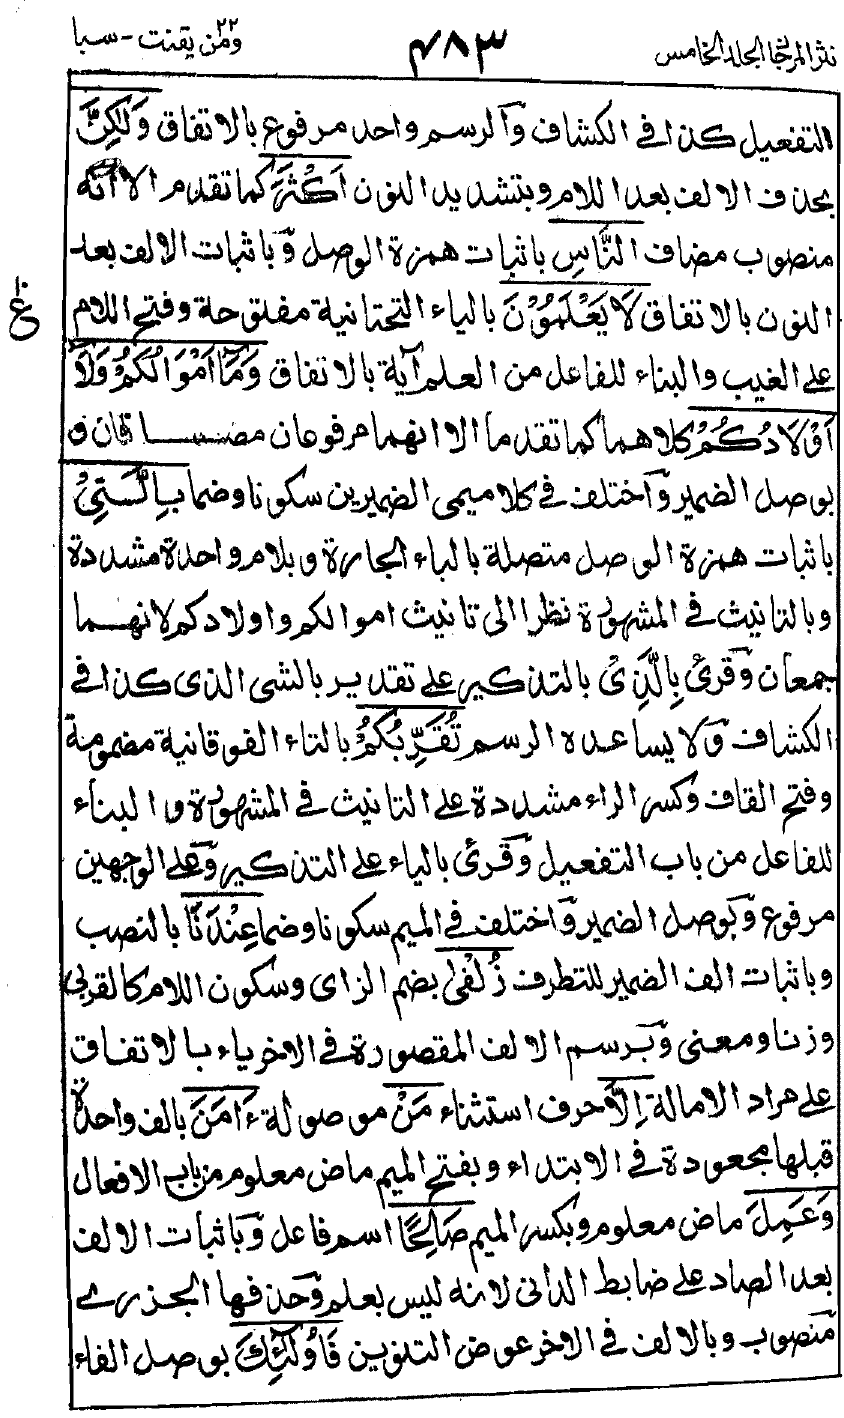 نثر المرجان الجلد الخامس
٤٨٣
ومن يقنت ٢٢ - سبا
التفعيل كذا في الكشاف والرسم واحد مرفوع بالاتفاق وَلٰكِنَّ
بحذف الالف بعد اللام وبتشديد النون اَكْثَرَ كما تقدم الا انه
منصوب مضاف النَّاسِ باثبات همزة الوصل وباثبات الالف بعد
النون بالاتفاق لَا يَعْلَمُوْنَ بالياء التحتانية مفتوحة وفتح اللام
على الغيب والبناء للفاعل من العلم آية بالاتفاق وَمَآ اَمْوَالُكُمْ وَلَآ
اَوْلَادُكُمْ كلاهما كما تقدما الا انهما مرفوعان مضافان و
بوصل الضمير واختلف في كلا ميمى الضميرين سكونا وضما بِالَّتِيْ
باثبات همزة الوصل متصلة بالباء الجارة وبلام واحدة مشددة
وبالتانيث في المشهورة نظرا الى تانيث اموالكم واولادكم لانهما
جمعان وقرئ بِالَّذِيْ بالتذكير على تقدير بالشى الذى كذا في
الكشاف ولا يساعده الرسم تُقَرِّبُكُمْ بالتاء الفوقانية مضمومة
وفتح القاف وكسر الراء مشددة على التانيث في المشهورة والبناء
للفاعل من باب التفعيل وقرئ بالياء على التذكير وعلى الوجهين
مرفوع وبوصل الضمير واختلف في الميم سكونا وضما عِنْدَنَا بالنصب
وباثبات الف الضمير للتطرف زُلْفٰى بضم الزاى وسكون اللام كالقربى
وزنا ومعنى وبرسم الالف المقصورة في الاخر ياء بالاتفاق
على مراد الامالة اِلَّا حرف استثناء مَنْ موصولة ءَامَنَ بالف واحدة
قبلها مجعودة في الابتداء وبفتح الميم ماض معلوم من باب الافعال
وَعَمِلَ ماض معلوم وبكسر الميم صَالِحًا اسم فاعل وباثبات الالف
بعد الصاد على ضابط الدانى لانه ليس بعلم وحذفها الجزرى
منصوب وبالالف في الاخر عوض التنوين فَاُولٰٓئِكَ بوصل الفاء